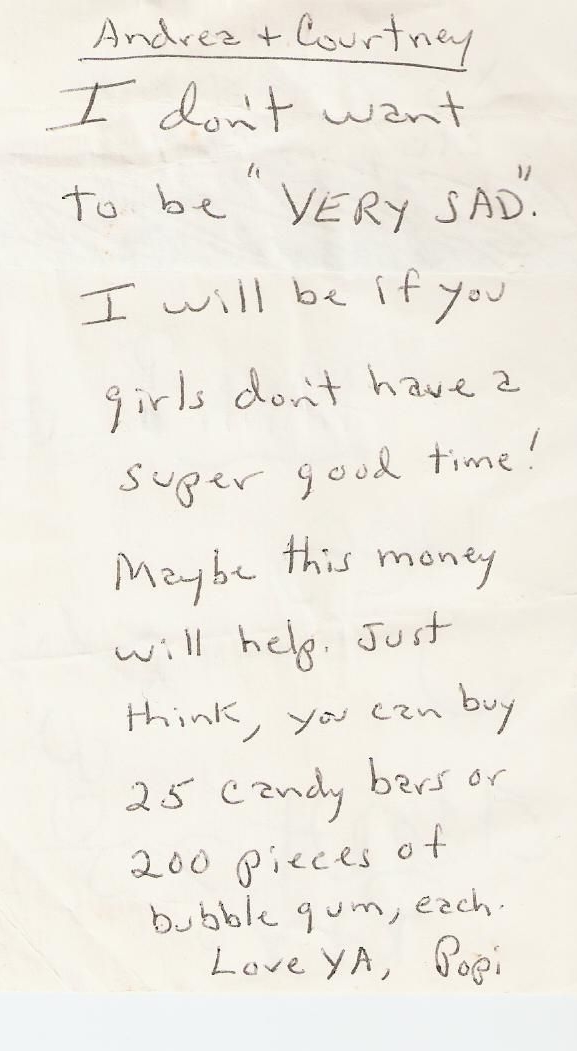 Andrea + Courtney
I don't want
to be "VERY SAD".
I will be if you
girls don't have a
super good time!
Maybe this money
will help. Just
think, you can buy
25 candy bars or
200 pieces of
bubble gum, each.
Love YA, Popi